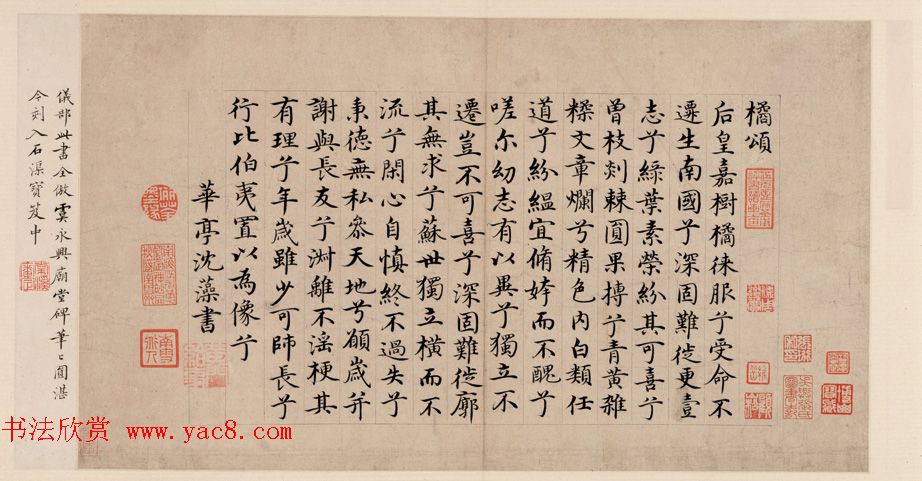 橘頌
后皇嘉樹橘徠服兮受命不
遷生南國兮深固難徙更壹
志兮綠葉素榮紛其可喜兮
曾枝剡棘圓果摶兮青黃雜
糅文章爛兮精色內白類任
道兮紛緼宜脩姱而不醜兮
嗟尔幼志有以異兮獨立不
遷豈不可喜兮深固難徙廓
其無求兮蘇世獨立橫而不
流兮閉心自慎終不過失兮
秉德無私參天地兮願歲并
謝與長友兮淑離不淫梗其
有理兮年歲雖少可師長兮
行比伯夷置以為像兮
華亭沈藻書
儀部此書全倣虞永興廟堂碑筆〻圓湛
今刻入石渠寶笈中
书法欣赏 www.yac8.com